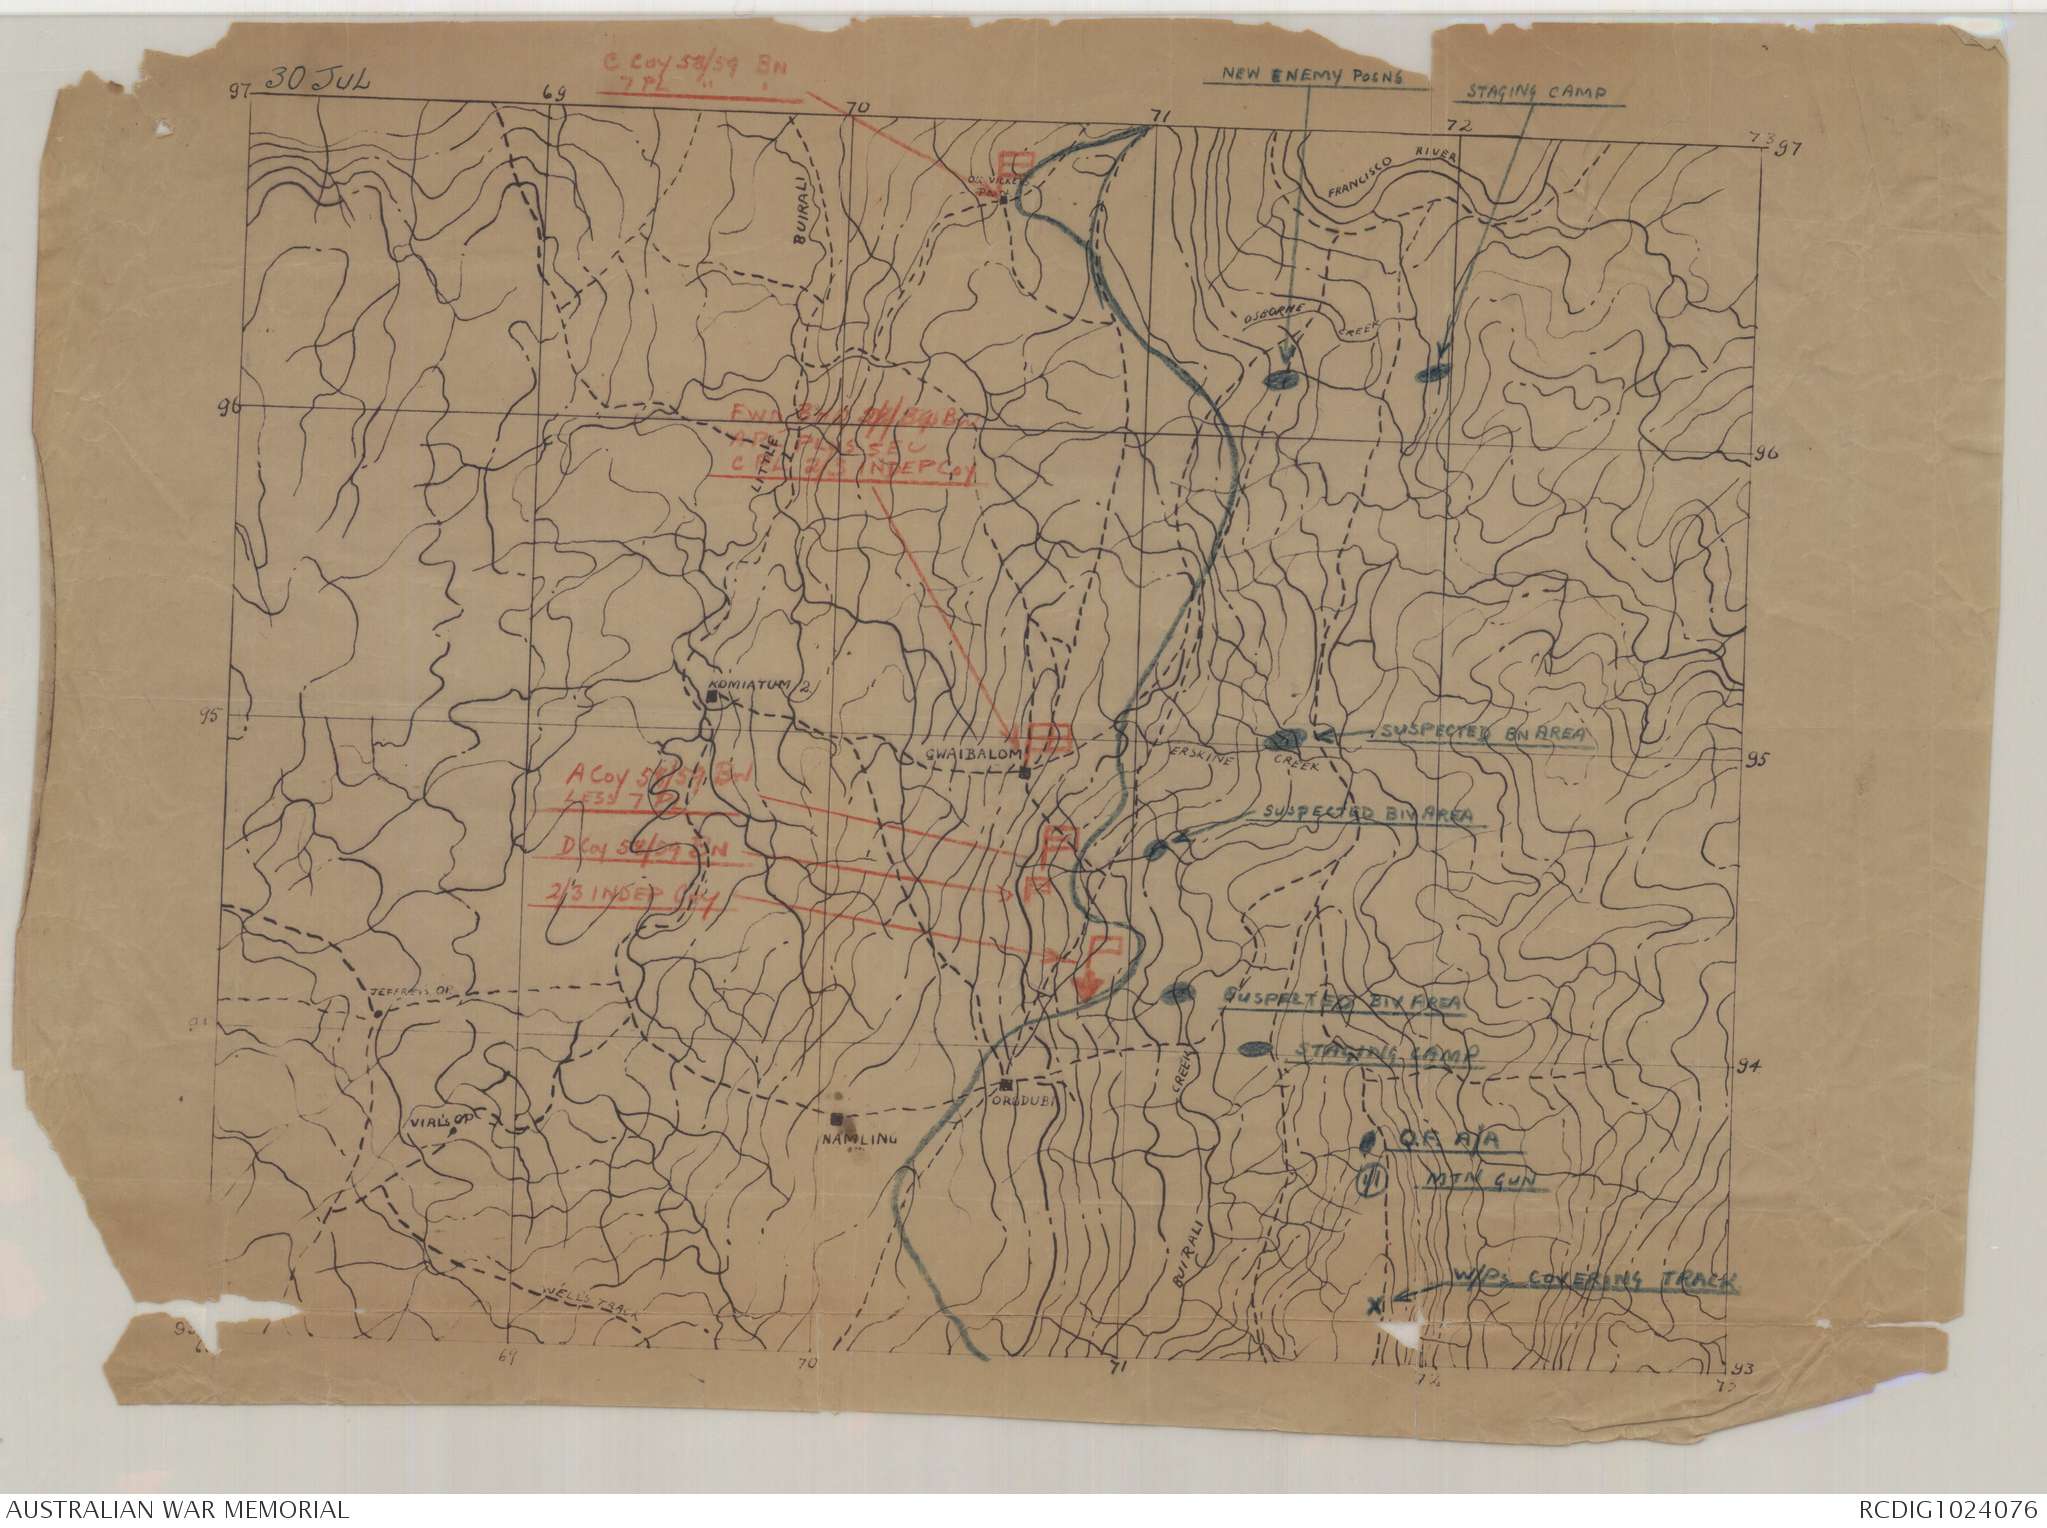 30 JUL
C Coy 58/59 BN
7 PL " "
NEW ENEMY POSNS
STAGING CAMP
97
69
70
71
72
73
97
FRANCISCO RIVER
BUIRALI
OSBORNE CREEK
96
58/59 BN
PLUS SEC
C PL 2/3 INDEP Coy
LITTLE
96
KOMIATUM 2
95
GWAIBALOM
ERSKINE CREEK
SUSPECTED BN AREA
95
A Coy 58/59 BN
LESS 7 PL
SUSPECTED BIV AREA
D Coy 58/59 BN
2/3 INDEP Coy
JEFFREYS OP
SUSPECTED BIV AREA
STAGING CAMP
94
CREEK
ORODUBI
VIAL'S OP
NAMLING
Q.F. A/A
MTN GUN
BUIRALI
WELLS TRACK
W/Ps COVERING TRACK
69
70
71
72
93
AUSTRALIAN WAR MEMORIAL
RCDIG1024076